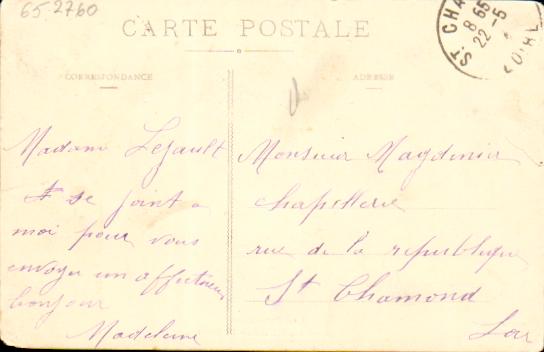 65 2760
CARTE POSTALE
CORRESPONDANCE
ADRESSE
ST CHA
8 65
22-5
LOIRE
Madame Legault
se joint a
moi pour vous
envoyer un affectueux
bonjour
Madeleine
Monsieur Magdinier
chapellerie
rue de la republique
St Chamond
Loire